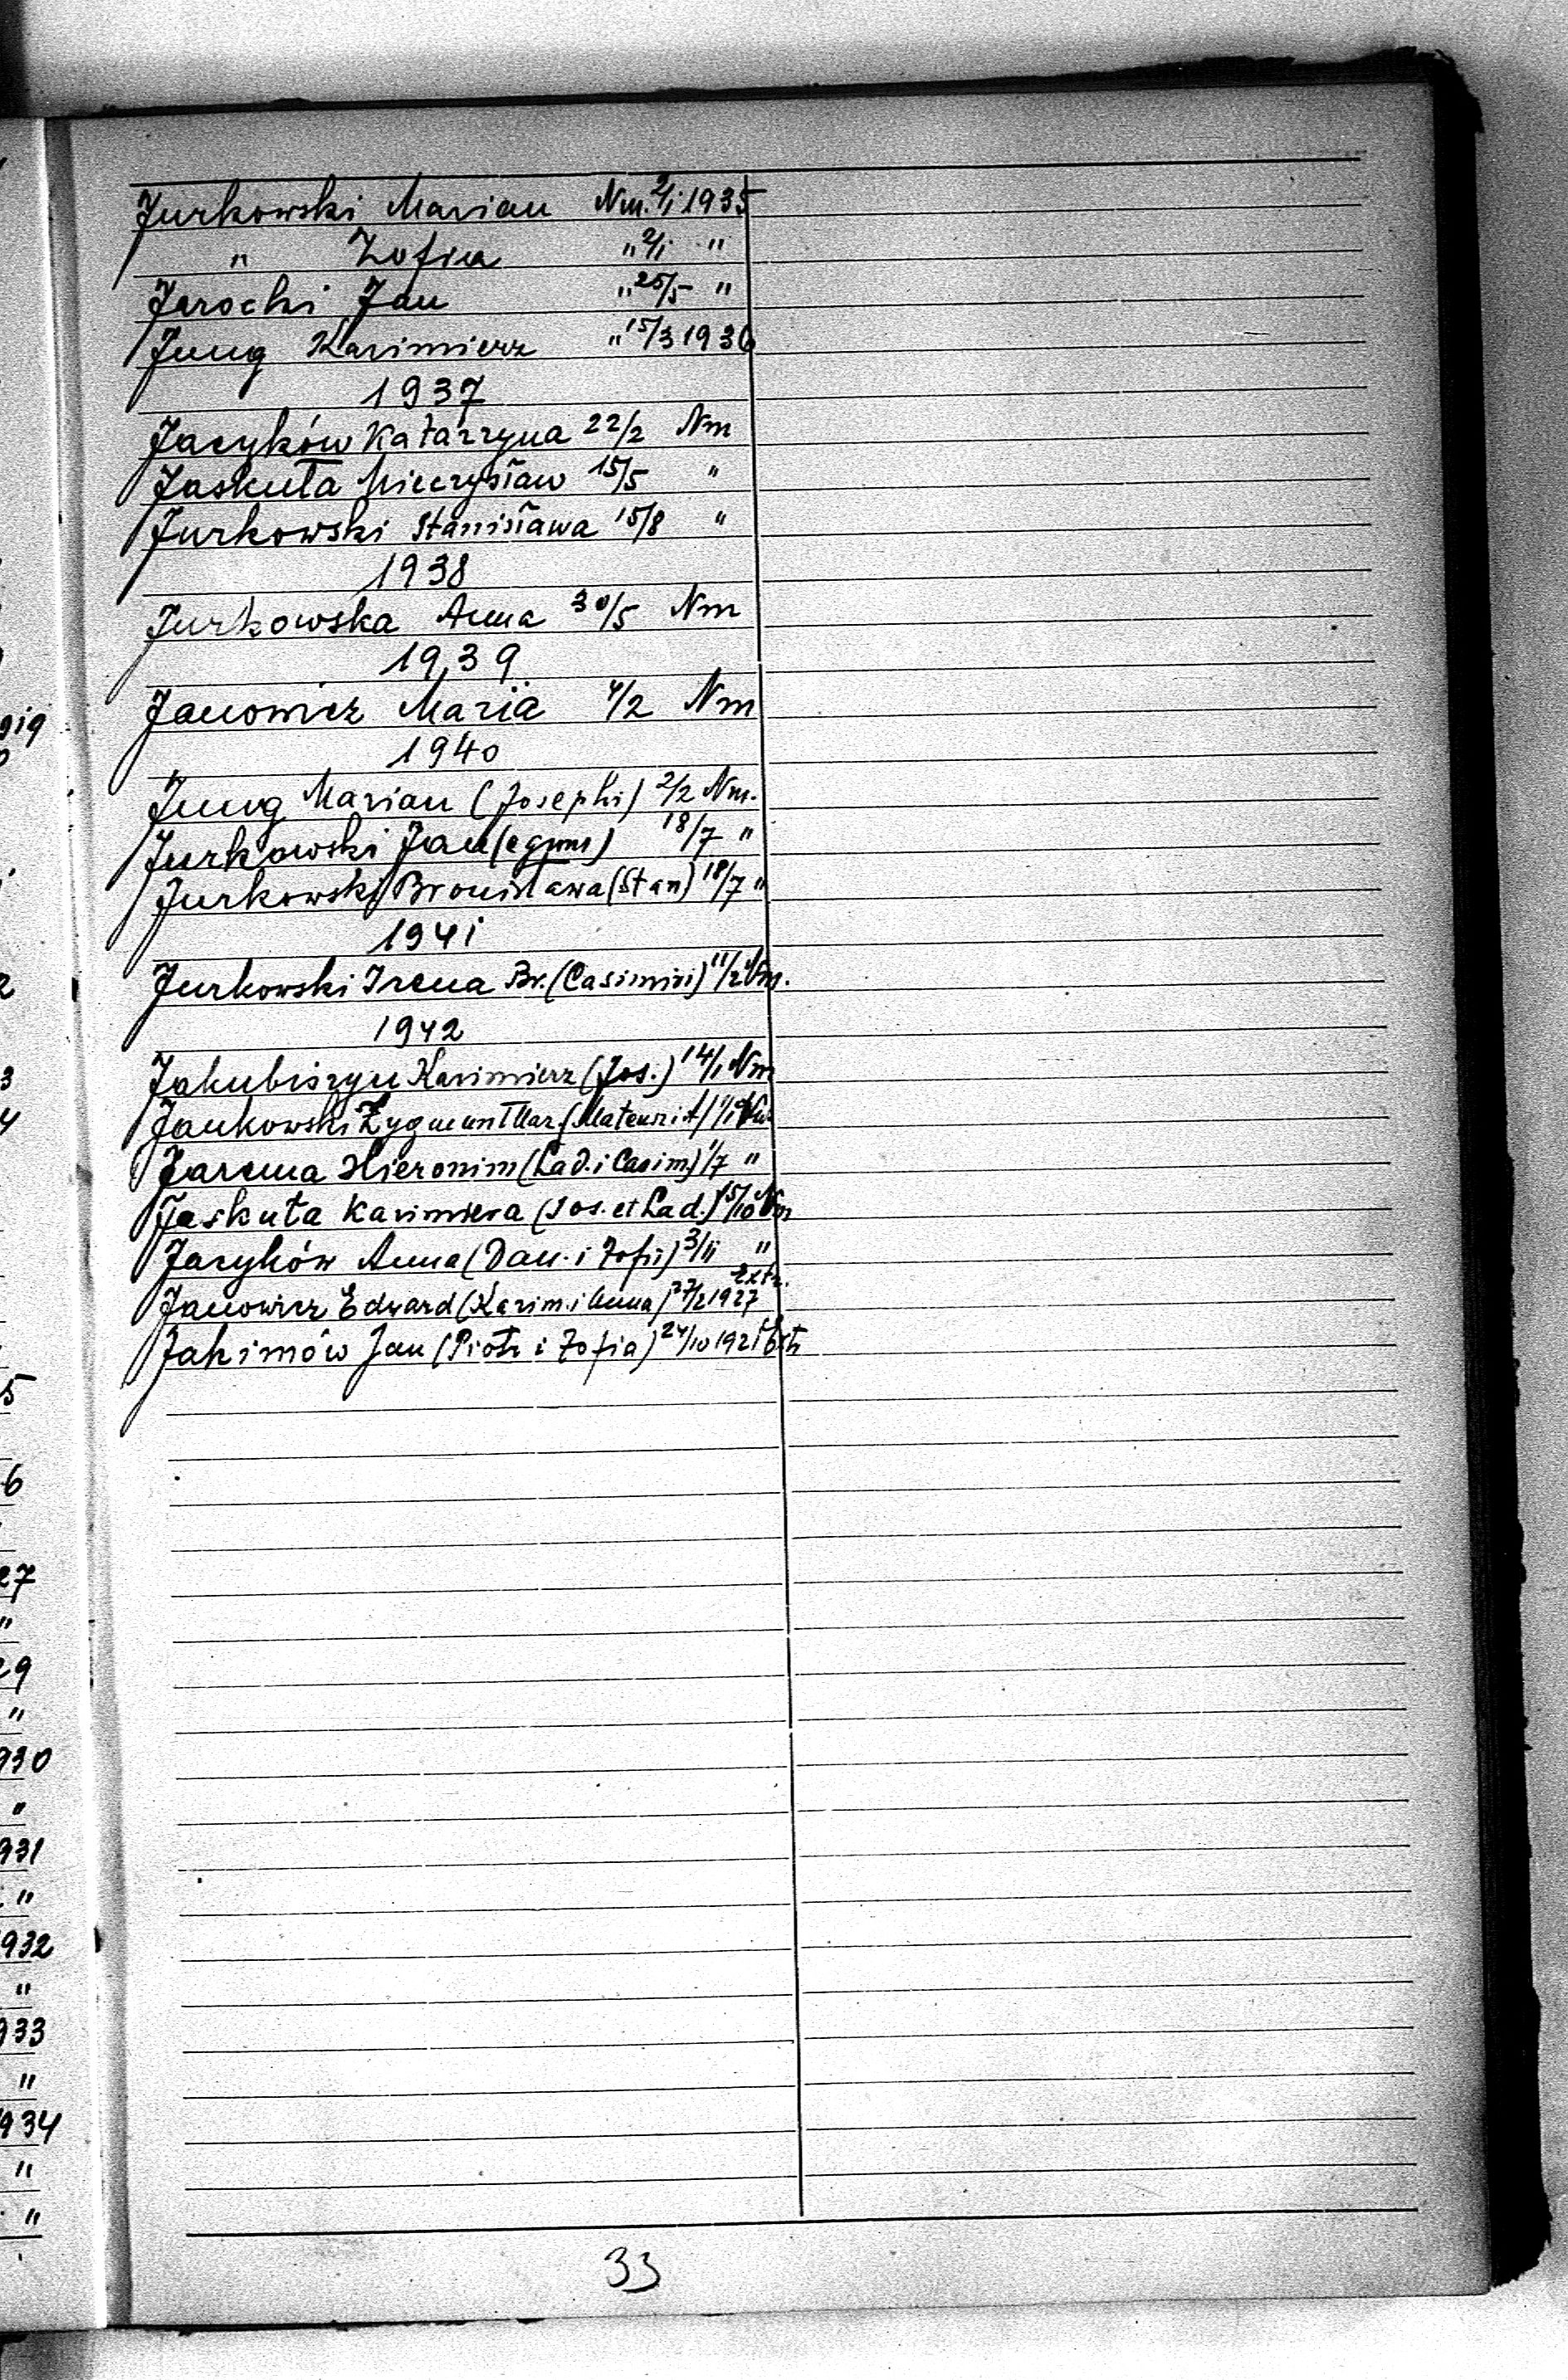 Jurkowski Marian Nm. 2/1 1935
" Zofia " 2/1 "
Jarocki Jan " 25/5 "
Jung Kazimierz " 15/3 1936
1937
Jacyków Katarzyna 22/2 Nm
Jaskuła Mieczysław 15/5 "
Jurkowski Stanisława 15/8 "
1938
Jurkowska Anna 30/5 Nm
1939
Janowicz Maria 4/2 Nm
1940
Jung Marian (Josephi) 2/2 Nm.
Jurkowski Jan 18/7 "
Jurkowski Bronisława (Stan) 18/7 "
1941
Jurkowski Irena Br. (Casimiri) 11/2 Nm.
1942
Jakubiszyn Kazimierz (Jos.) 14/1 Nm
Jankowski Zygmunt Mar.
Jarema Hieronim (Lad. i Casim) 1/7 "
Jaskuła Kazimiera (Jos. et Lad.) 15/10 Nm
Jacyków Anna (Dan. i Zofii) 3/11 "
Janowicz Edward (Kazim. i Anna) 27/2 1927 Extr.
Jakimów Jan (Piotr i Zofia) 24/10 1921
33
gig
2
3
4
5
6
27
"
29
"
930
"
931
"
932
"
933
"
934
"
"